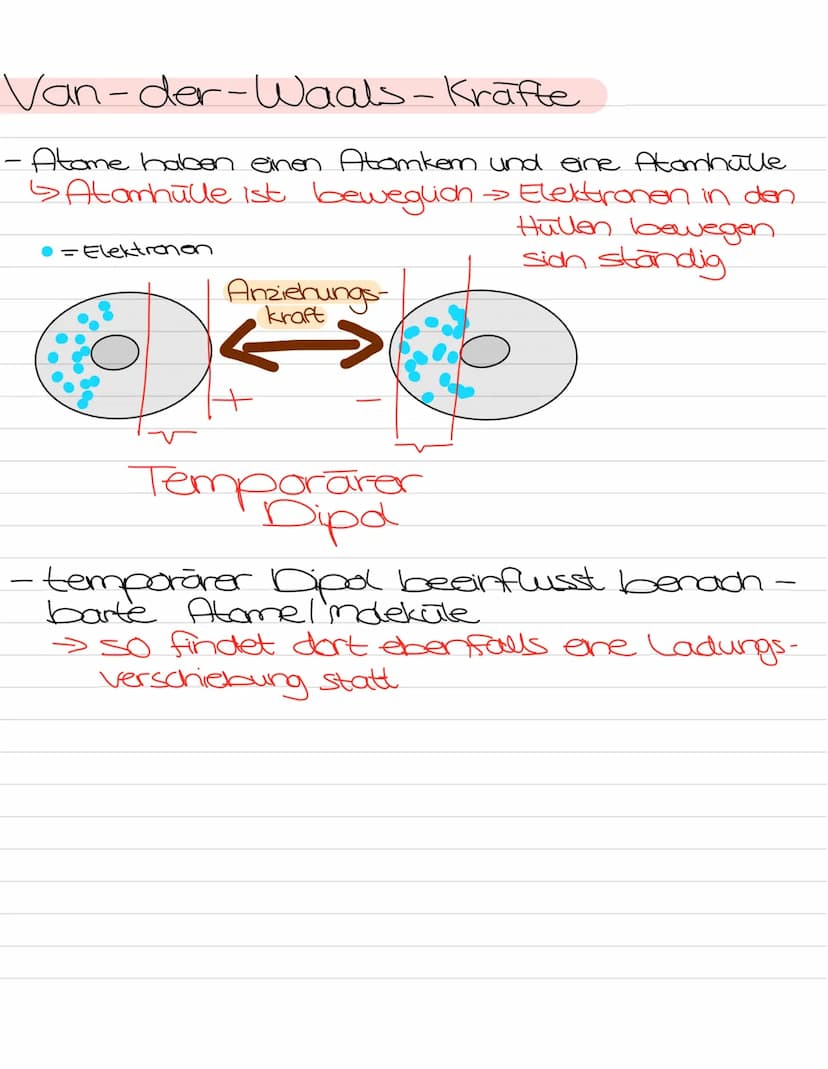 Van-der-Waals-Kräfte
- Atome haben einen Atomkern und eine Atomhülle
↳ Atomhülle ist beweglich → Elektronen in den
Hüllen bewegen
sich ständig
= Elektronen
Anziehungs-
kraft
+ -
Temporärer
Dipol
- temporärer Dipol beeinflusst benach-
barte Atome/Moleküle
→ so findet dort ebenfalls eine Ladungs-
verschiebung statt